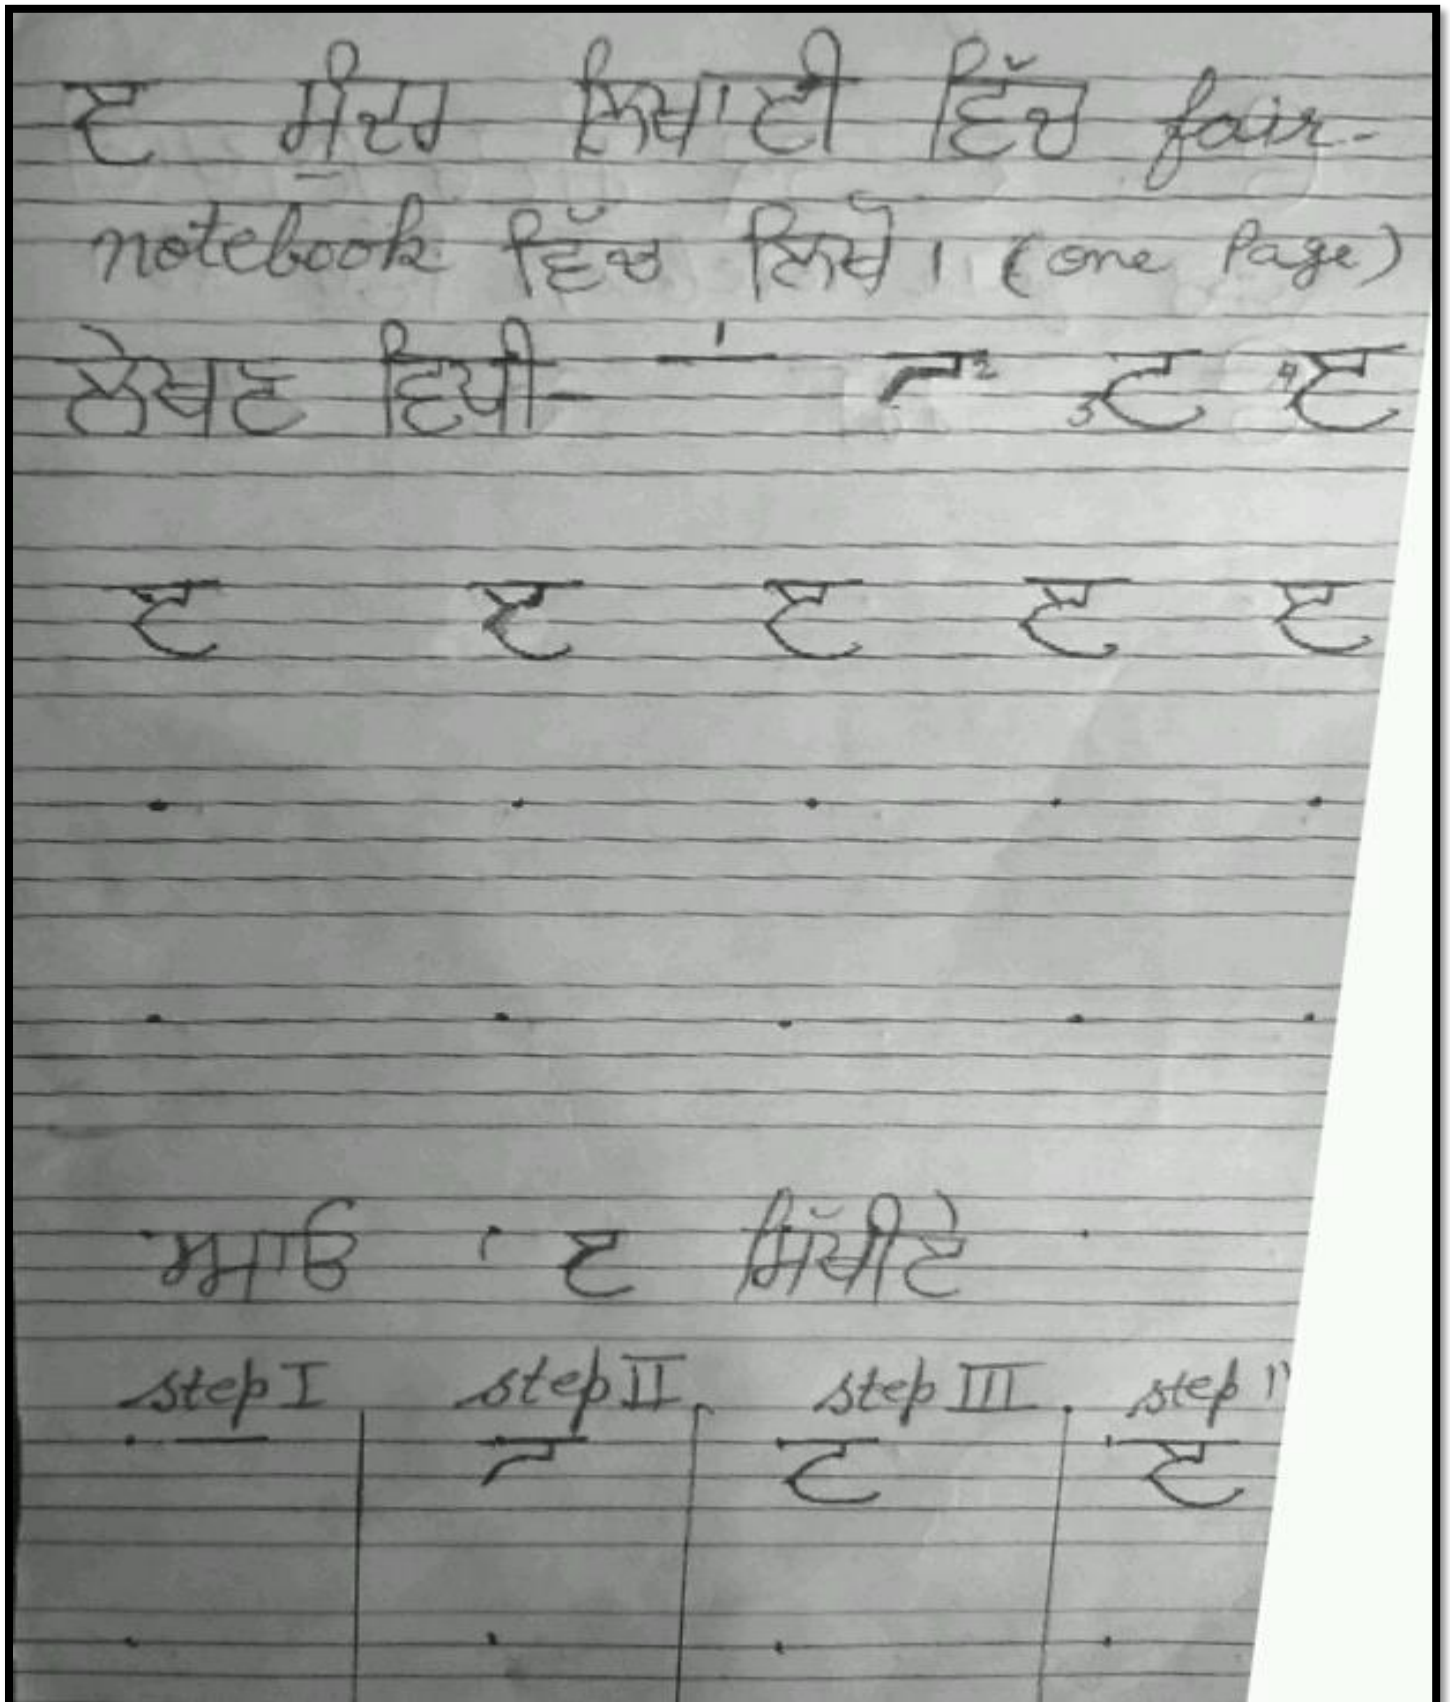 ੲ ਸੁੰਦਰ ਲਿਖਾਈ ਵਿੱਚ fair-
notebook ਵਿੱਚ ਲਿਖੋ। (one Page)
ਲੇਖਣ ਵਿਧੀ- 1 2 3 ਟ 4 ੲ
ੲ ੲ ੲ ੲ ੲ
ਆਓ ' ੲ ਸਿੱਖੀਏ
step I step II step III step
ਟ ੲ